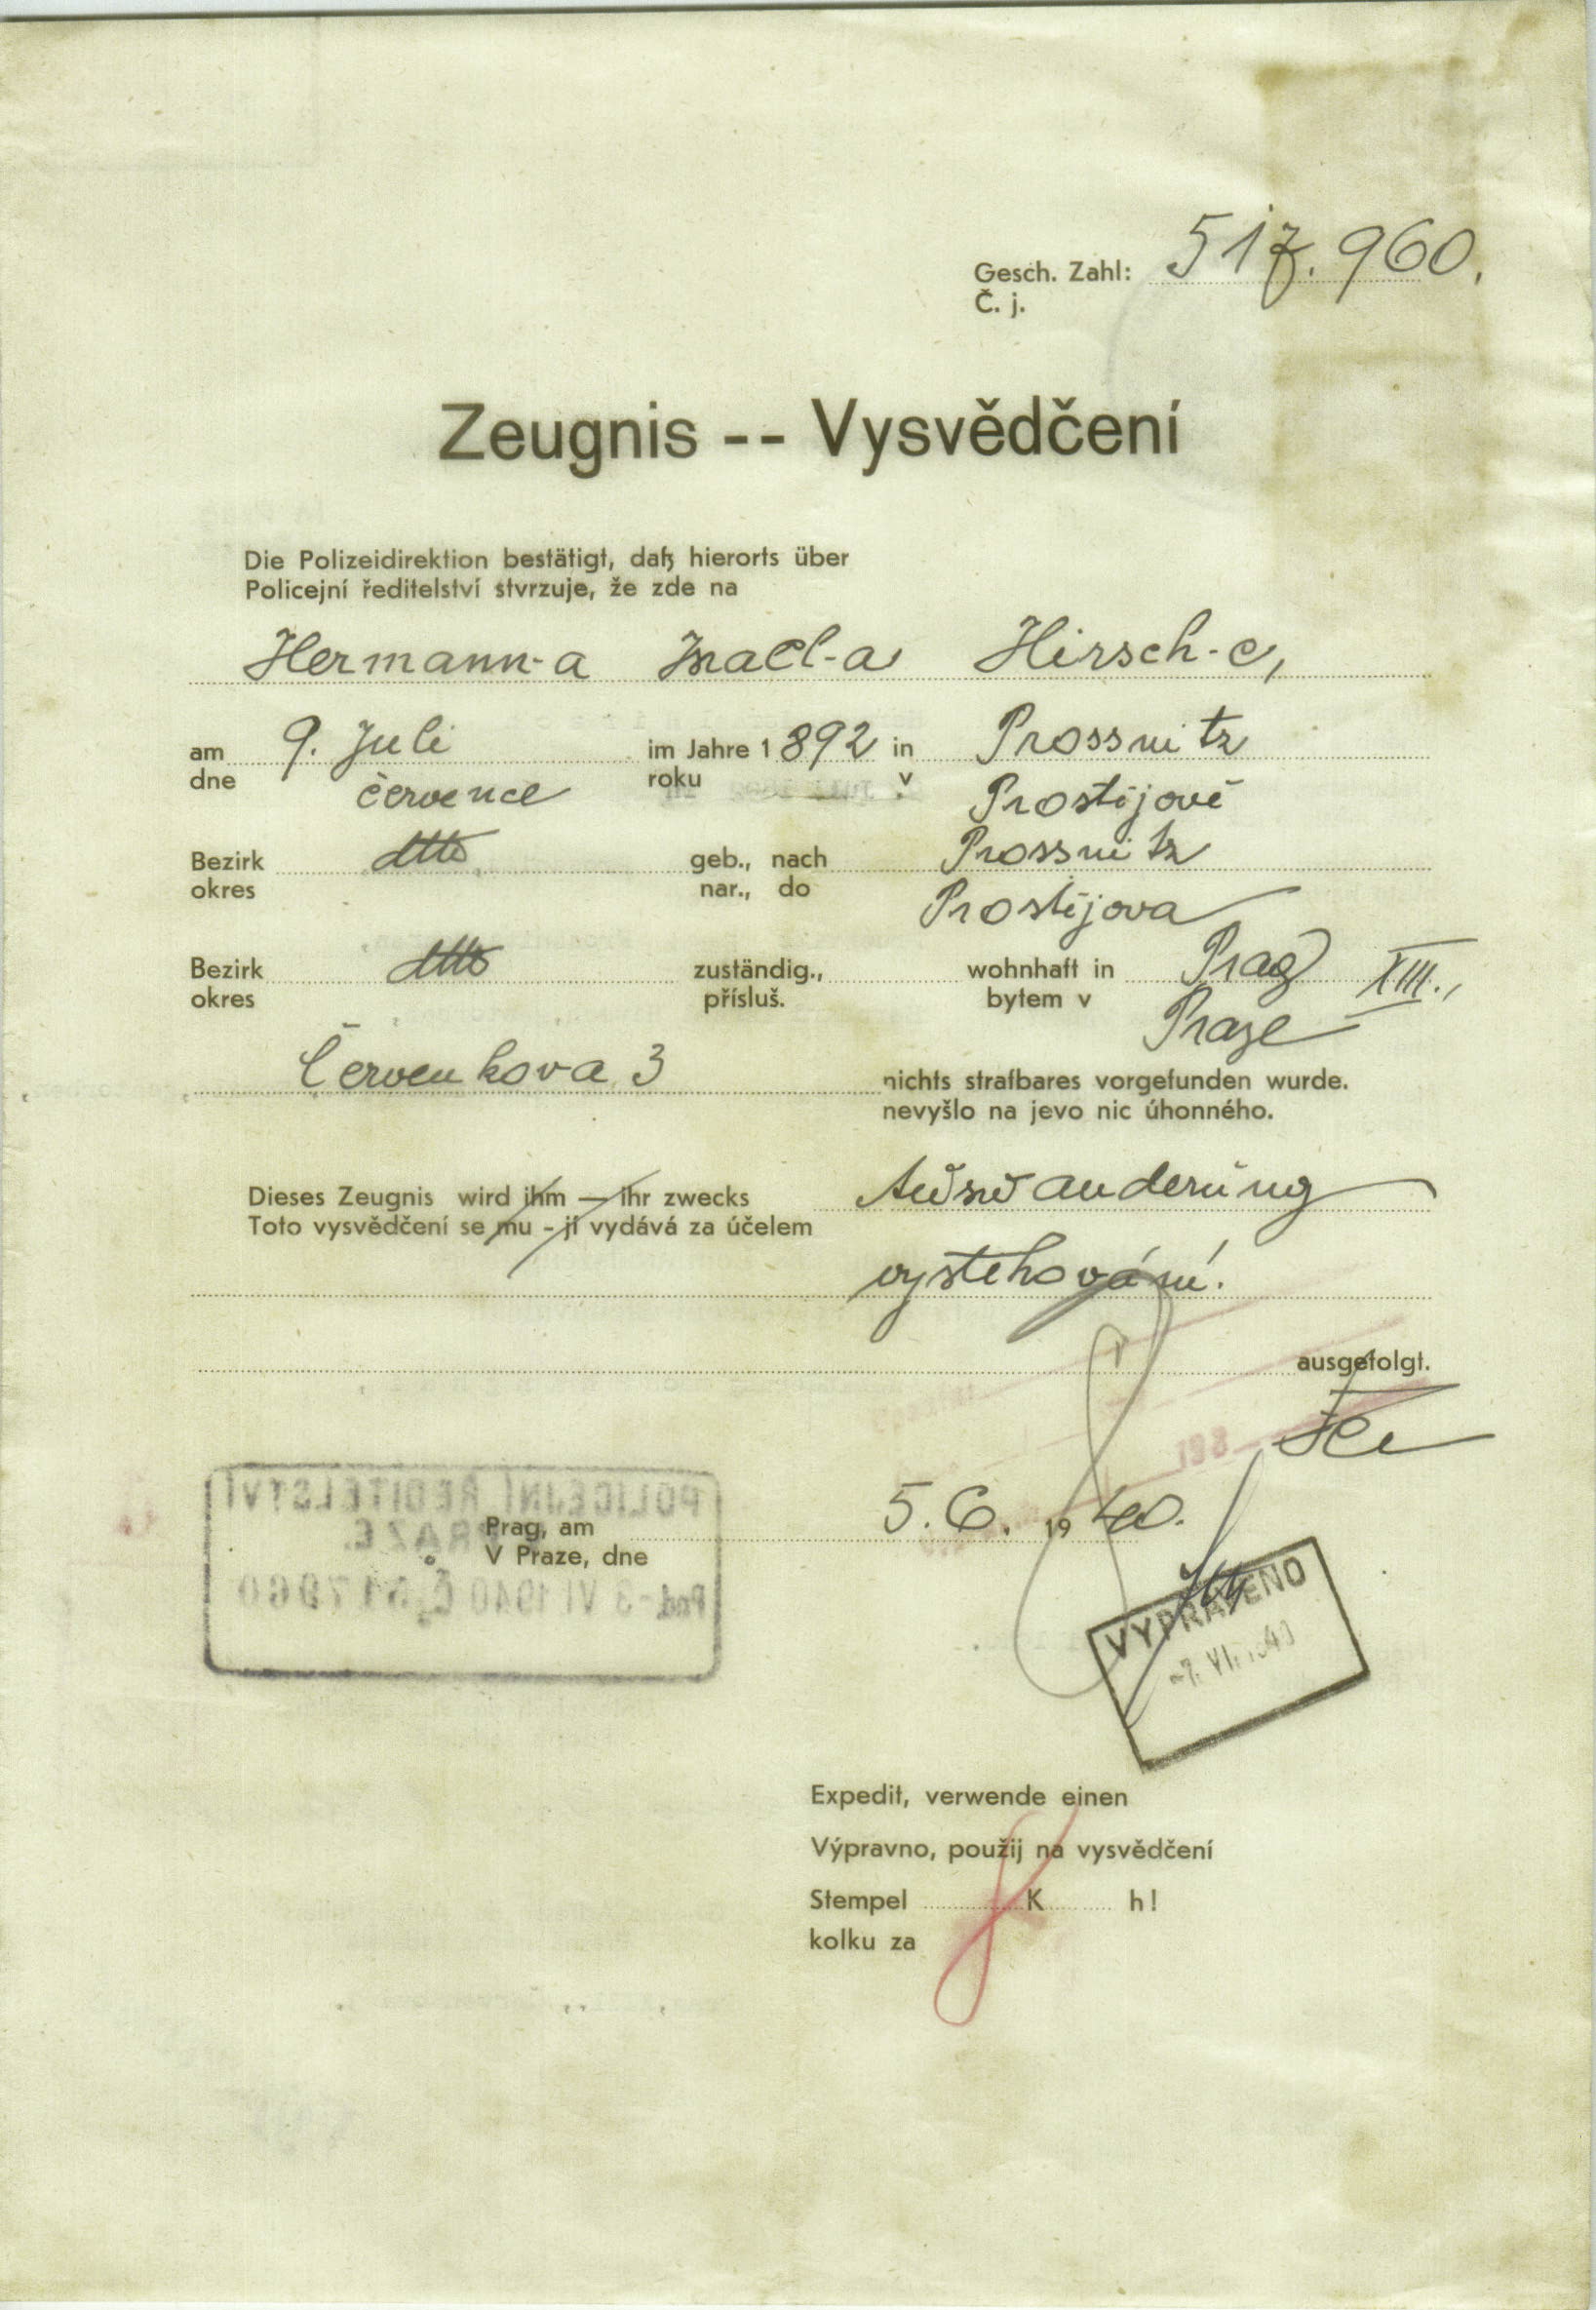 Gesch. Zahl: 517.960.
Č. j.
Zeugnis -- Vysvědčení
Die Polizeidirektion bestätigt, daß hierorts über
Policejní ředitelství stvrzuje, že zde na
Hermann-a Israel-a Hirsch-e,
am 9. Juli im Jahre 1892 in Prossnitz
dne července roku v Prostějově
Bezirk dtto geb., nach Prossnitz
okres nar., do Prostějova
Bezirk dtto zuständig., wohnhaft in Prag XIII.,
okres přísluš. bytem v Praze
Červenkova 3 nichts strafbares vorgefunden wurde.
nevyšlo na jevo nic úhonného.
Dieses Zeugnis wird ihm — ihr zwecks Auswanderung
Toto vysvědčení se mu - jí vydává za účelem
vystěhování.
ausgefolgt.
Prag, am 5.6. 1940.
V Praze, dne
POLICEJNÍ ŘEDITELSTVÍ
PRAZE.
Pod -3 VI 1940 Č. 517960
VYPRAVENO
-7. VI. 1940
Expedit, verwende einen
Výpravno, použij na vysvědčení
Stempel K h!
kolku za